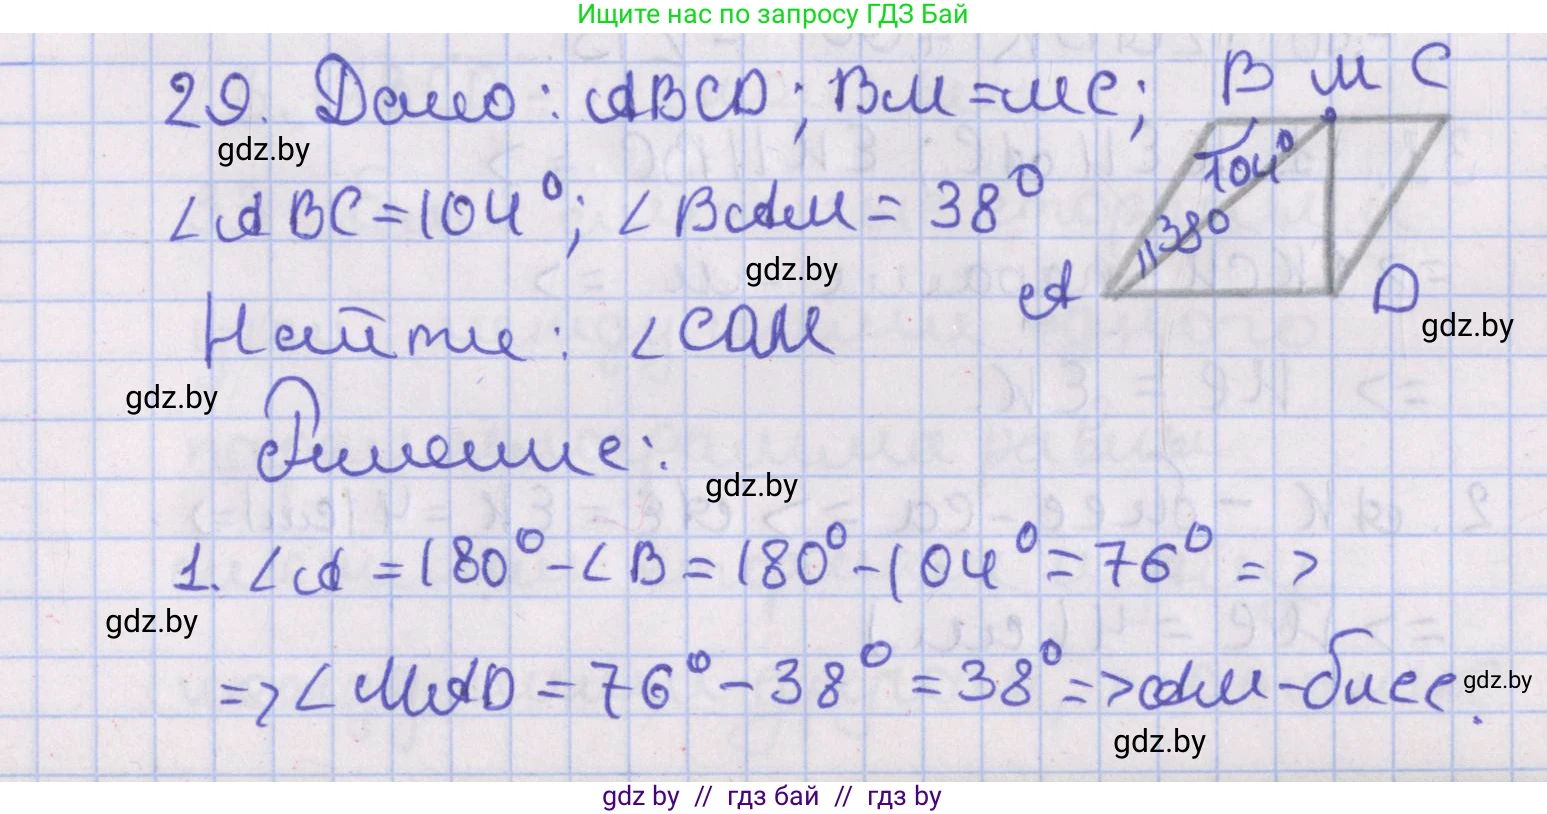 Ищите нас по запросу ГДЗ Бай
29. Дано: ABCD; BM=MC;
B M C
gdz.by
104°
∠ABC=104°; ∠BAM=38°
38°
gdz.by
A D
gdz.by
Найти: ∠CDM
gdz.by
Решение:
gdz.by
1. ∠A=180°-∠B=180°-104°=76° =>
gdz.by
=>∠MAD=76°-38°=38°=>AM-бисс.
gdz.by
gdz.by
gdz by // гдз бай // гдз by